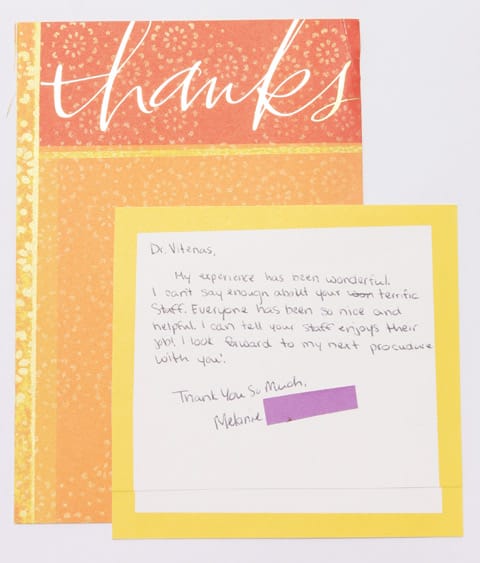 thanks
Dr. Vitenas,
My experience has been wonderful.
I can't say enough about your terrific
Staff. Everyone has been so nice and
helpful. I can tell your staff enjoys their
job! I look forward to my next procedure
with you!
Thank You So Much,
Melanie